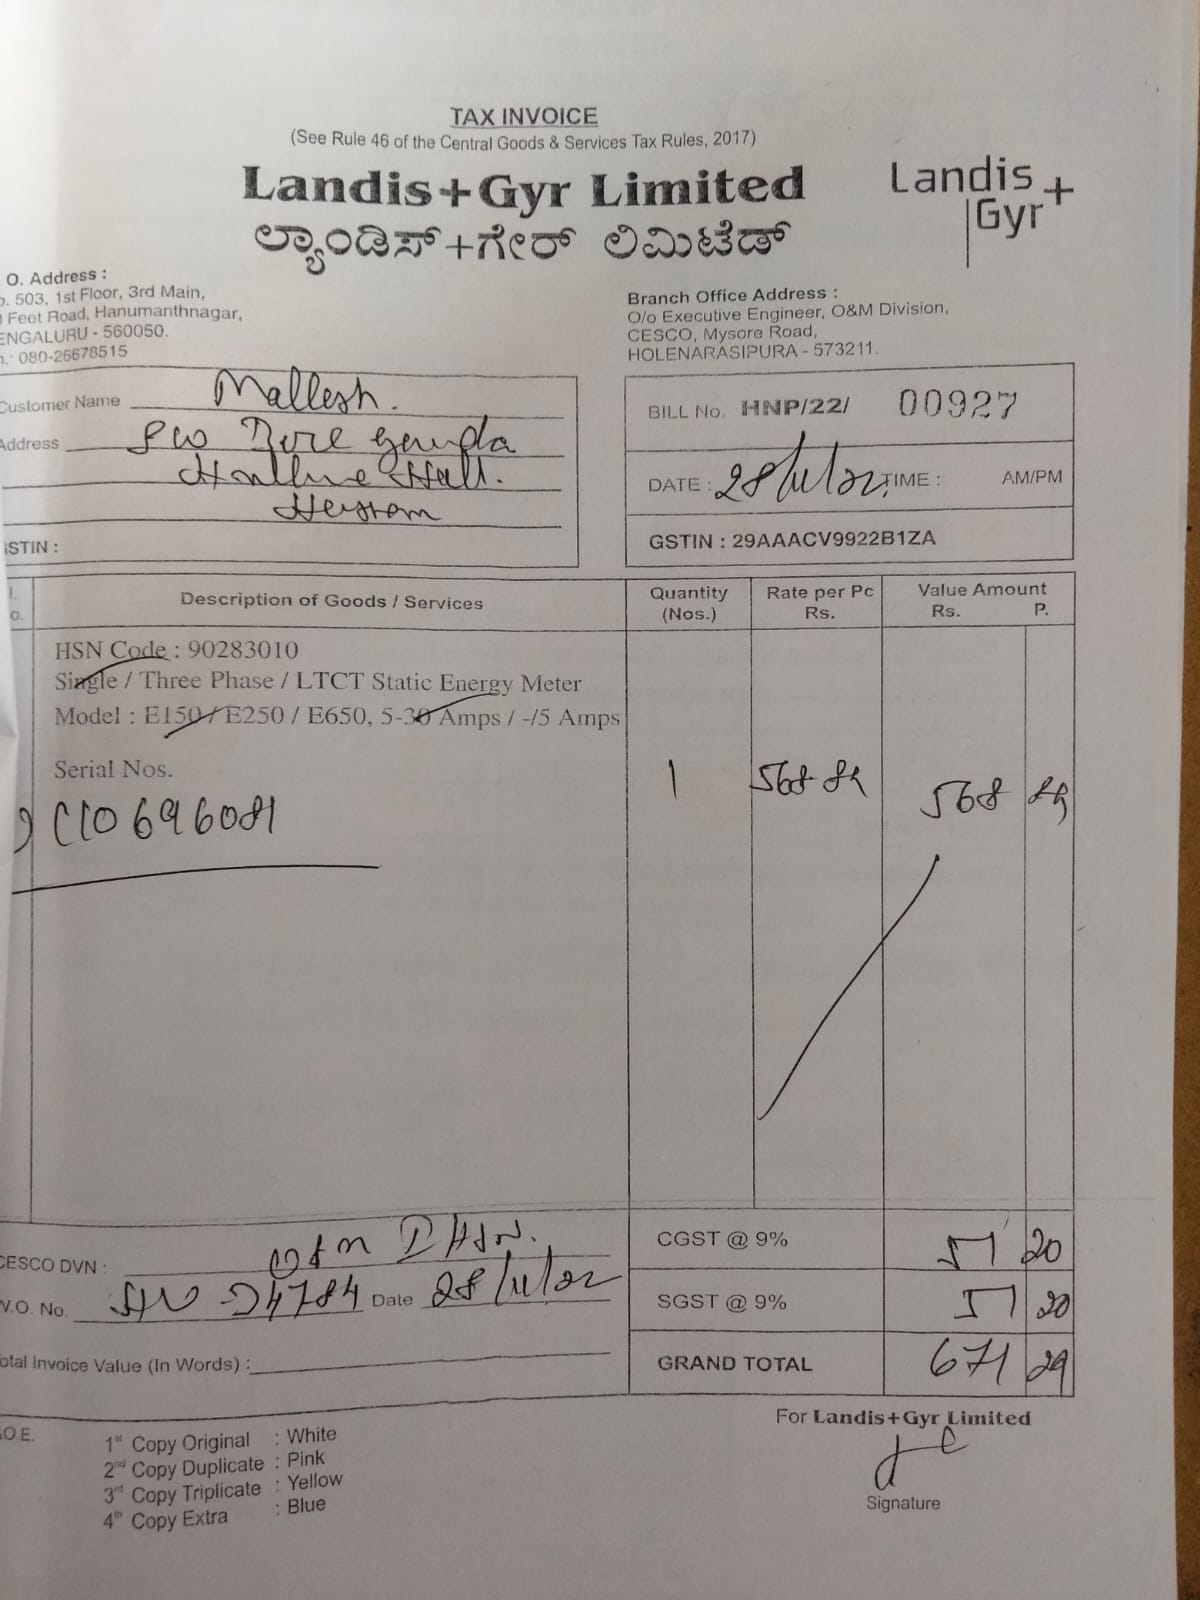 TAX INVOICE
(See Rule 46 of the Central Goods & Services Tax Rules, 2017)
Landis+Gyr Limited
ಲ್ಯಾಂಡಿಸ್+ಗೇರ್ ಲಿಮಿಟೆಡ್
Landis
Gyr+
O. Address :
503, 1st Floor, 3rd Main,
Feet Road, Hanumanthnagar,
ENGALURU - 560050.
080-26678515
Branch Office Address :
O/o Executive Engineer, O&M Division,
CESCO, Mysore Road,
HOLENARASIPURA - 573211.
Customer Name Mallesh.
Address
STIN :
BILL No. HNP/22/ 00927
DATE : 28/11/22 TIME : AM/PM
GSTIN : 29AAACV9922B1ZA
Description of Goods / Services Quantity (Nos.) Rate per Pc Rs. Value Amount Rs. P.
HSN Code : 90283010
Single / Three Phase / LTCT Static Energy Meter
Model : E150 / E250 / E650, 5-30 Amps / -/5 Amps
Serial Nos.
1 568 568
696081
CESCO DVN :
W.O. No. 24784 Date 28/11/22
otal Invoice Value (In Words) :
CGST @ 9% 51 20
SGST @ 9% 51 20
GRAND TOTAL 671 29
For Landis+Gyr Limited
Signature
O.E.
1st Copy Original : White
2nd Copy Duplicate : Pink
3rd Copy Triplicate : Yellow
4th Copy Extra : Blue